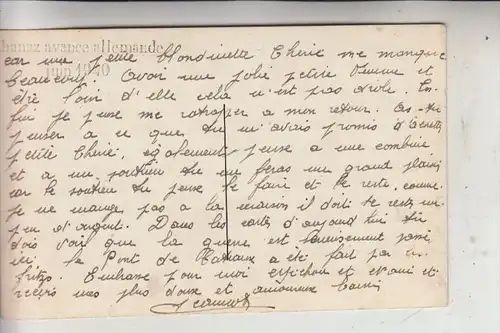 avance allemande
juin 1940
car une petite blondinette Cherie me manque
beaucoup. Avoir une jolie petite femme et
être loin d'elle cela n'est pas drole. En-
fin je pense me ratraper a mon retour. As-tu
penser a ce que tu m'avais promis d'acheter
petite Cherie, egalement pense a une combine
et a un soutien tu me feras un grand plaisir
car le soutien tu pense le faire et le reste, comme
je ne mange pas a la maison il doit te rester un
peu d'argent. Dans les cartes d'aujourd'hui tu
dois voir que la guerre est passé
ici. le Pont de a été fait par les
fritzs. Embrasse pour moi et et
reçois mes plus doux et amoureux baisers